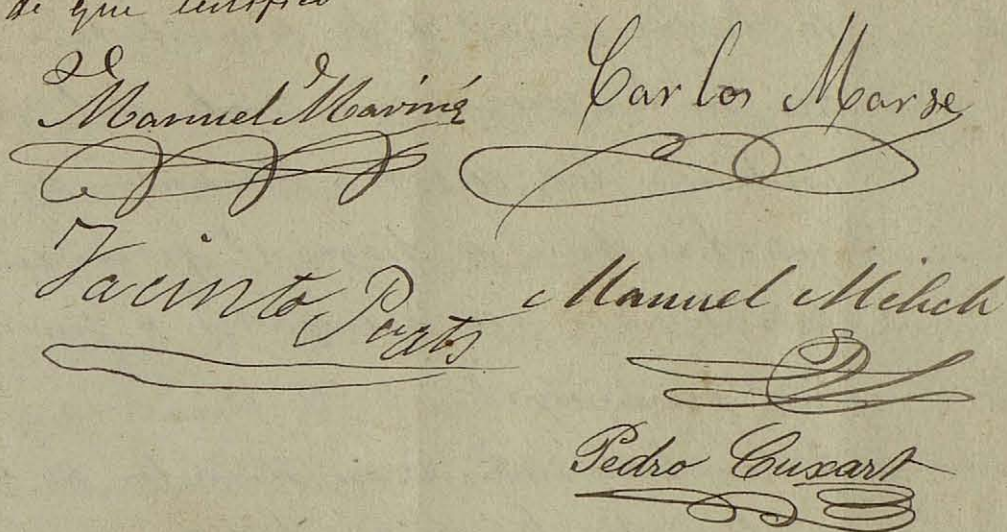 de que certifico
Manuel Mariné Carlos Marse
Jacinto Poats Manuel Milich
Pedro Cuxart